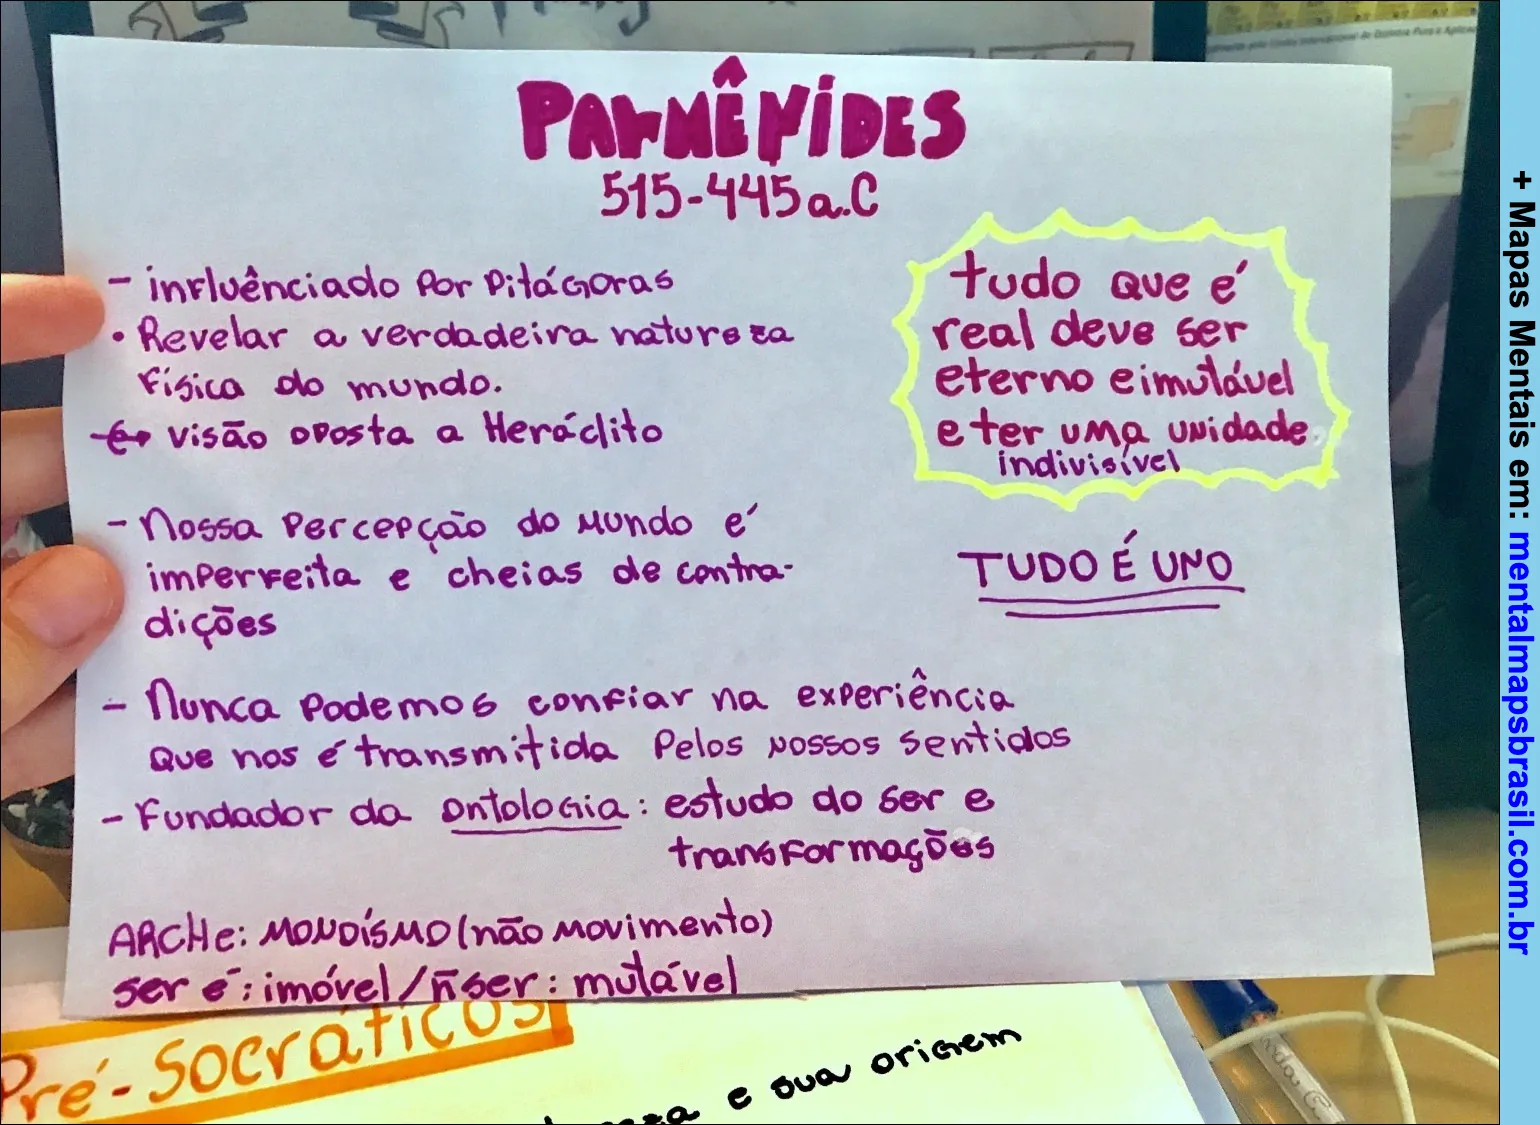 PARMÊNIDES
515-445 a.C
- influênciado por Pitágoras
• Revelar a verdadeira natureza
física do mundo.
visão oposta a Heráclito
- Nossa percepção do mundo é
imperfeita e cheias de contra-
dições
- Nunca podemos confiar na experiência
que nos é transmitida pelos nossos sentidos
- Fundador da ontologia: estudo do ser e
transformações
ARCHe: MONOÍSMO (não movimento)
ser é: imóvel/ñ ser: mutável
tudo que é
real deve ser
eterno e imutável
e ter uma unidade
indivisível
TUDO É UNO
Pré-Socráticos
e sua origem
+ Mapas Mentais em: mentalmapsbrasil.com.br